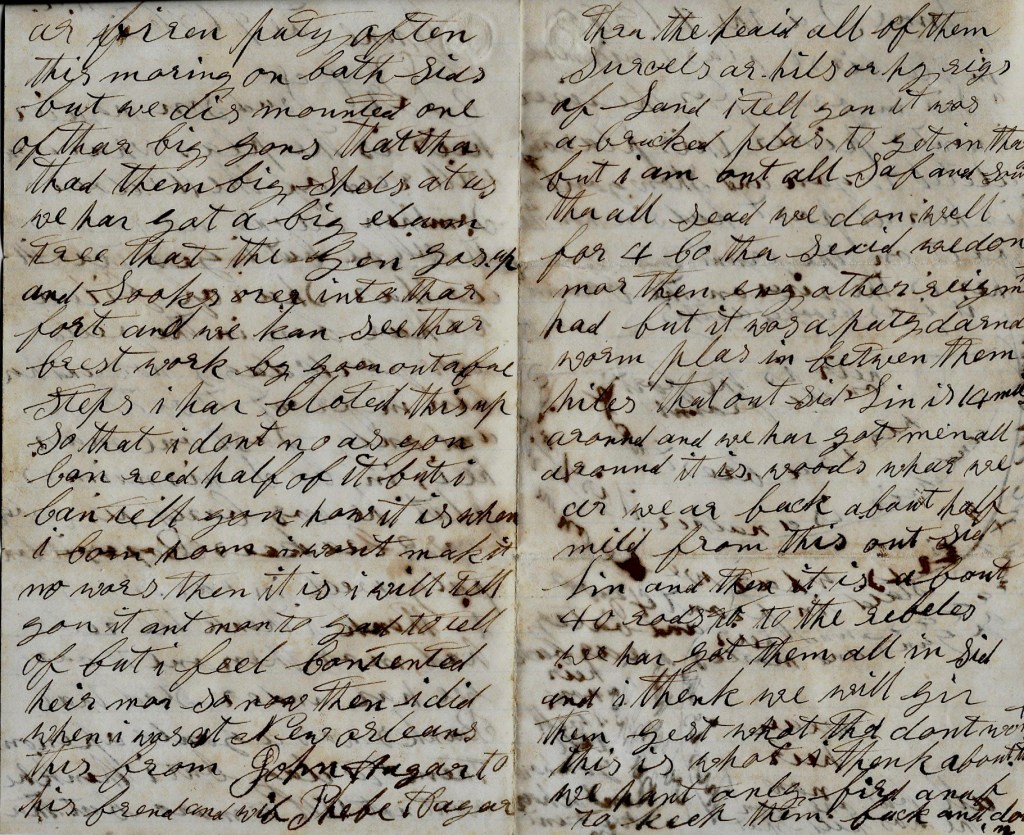 ar firren paty often
this moring on bath sids
but we dis mounted one
of thar big gons that tha
thad them big shels at us
we har got a big
tree that the Gen gos up
and Looks over into thar
fort and we kan see thar
brest work by goen out a fue
steps i har bloted this up
so that i dont no as you
Can reed half of it but i
Can tell you how it is when
i Com hom i wont mak it
no wors then it is i will tell
you it ant mor to you to tell
of but i feel Contented
heir mor so now then i did
when i was at New orleans
this from John Hagar to
his frend and wib Phebe Hagar
then the heaid all of them
Survels ar hils or hy rigs
of Sand i tell you it was
a plas to get in tha
but i am out all Saf and
tha all sead we don well
for 4 Co tha seaid we don
mor then eny other reigm
had but it was a paty darnd
worm plas in betwen them
hiles that out sid Lin is 14
around and we har got men all
around it is woods whar we
ar we ar back about half
mild from this out sid
Lin and then it is about
40 rods to the rebeles
we har got them all in sid
and i thenk we will gir
them gest what tha dont
this is what i thenk about
we hant only fird anuf
to keek them back and do